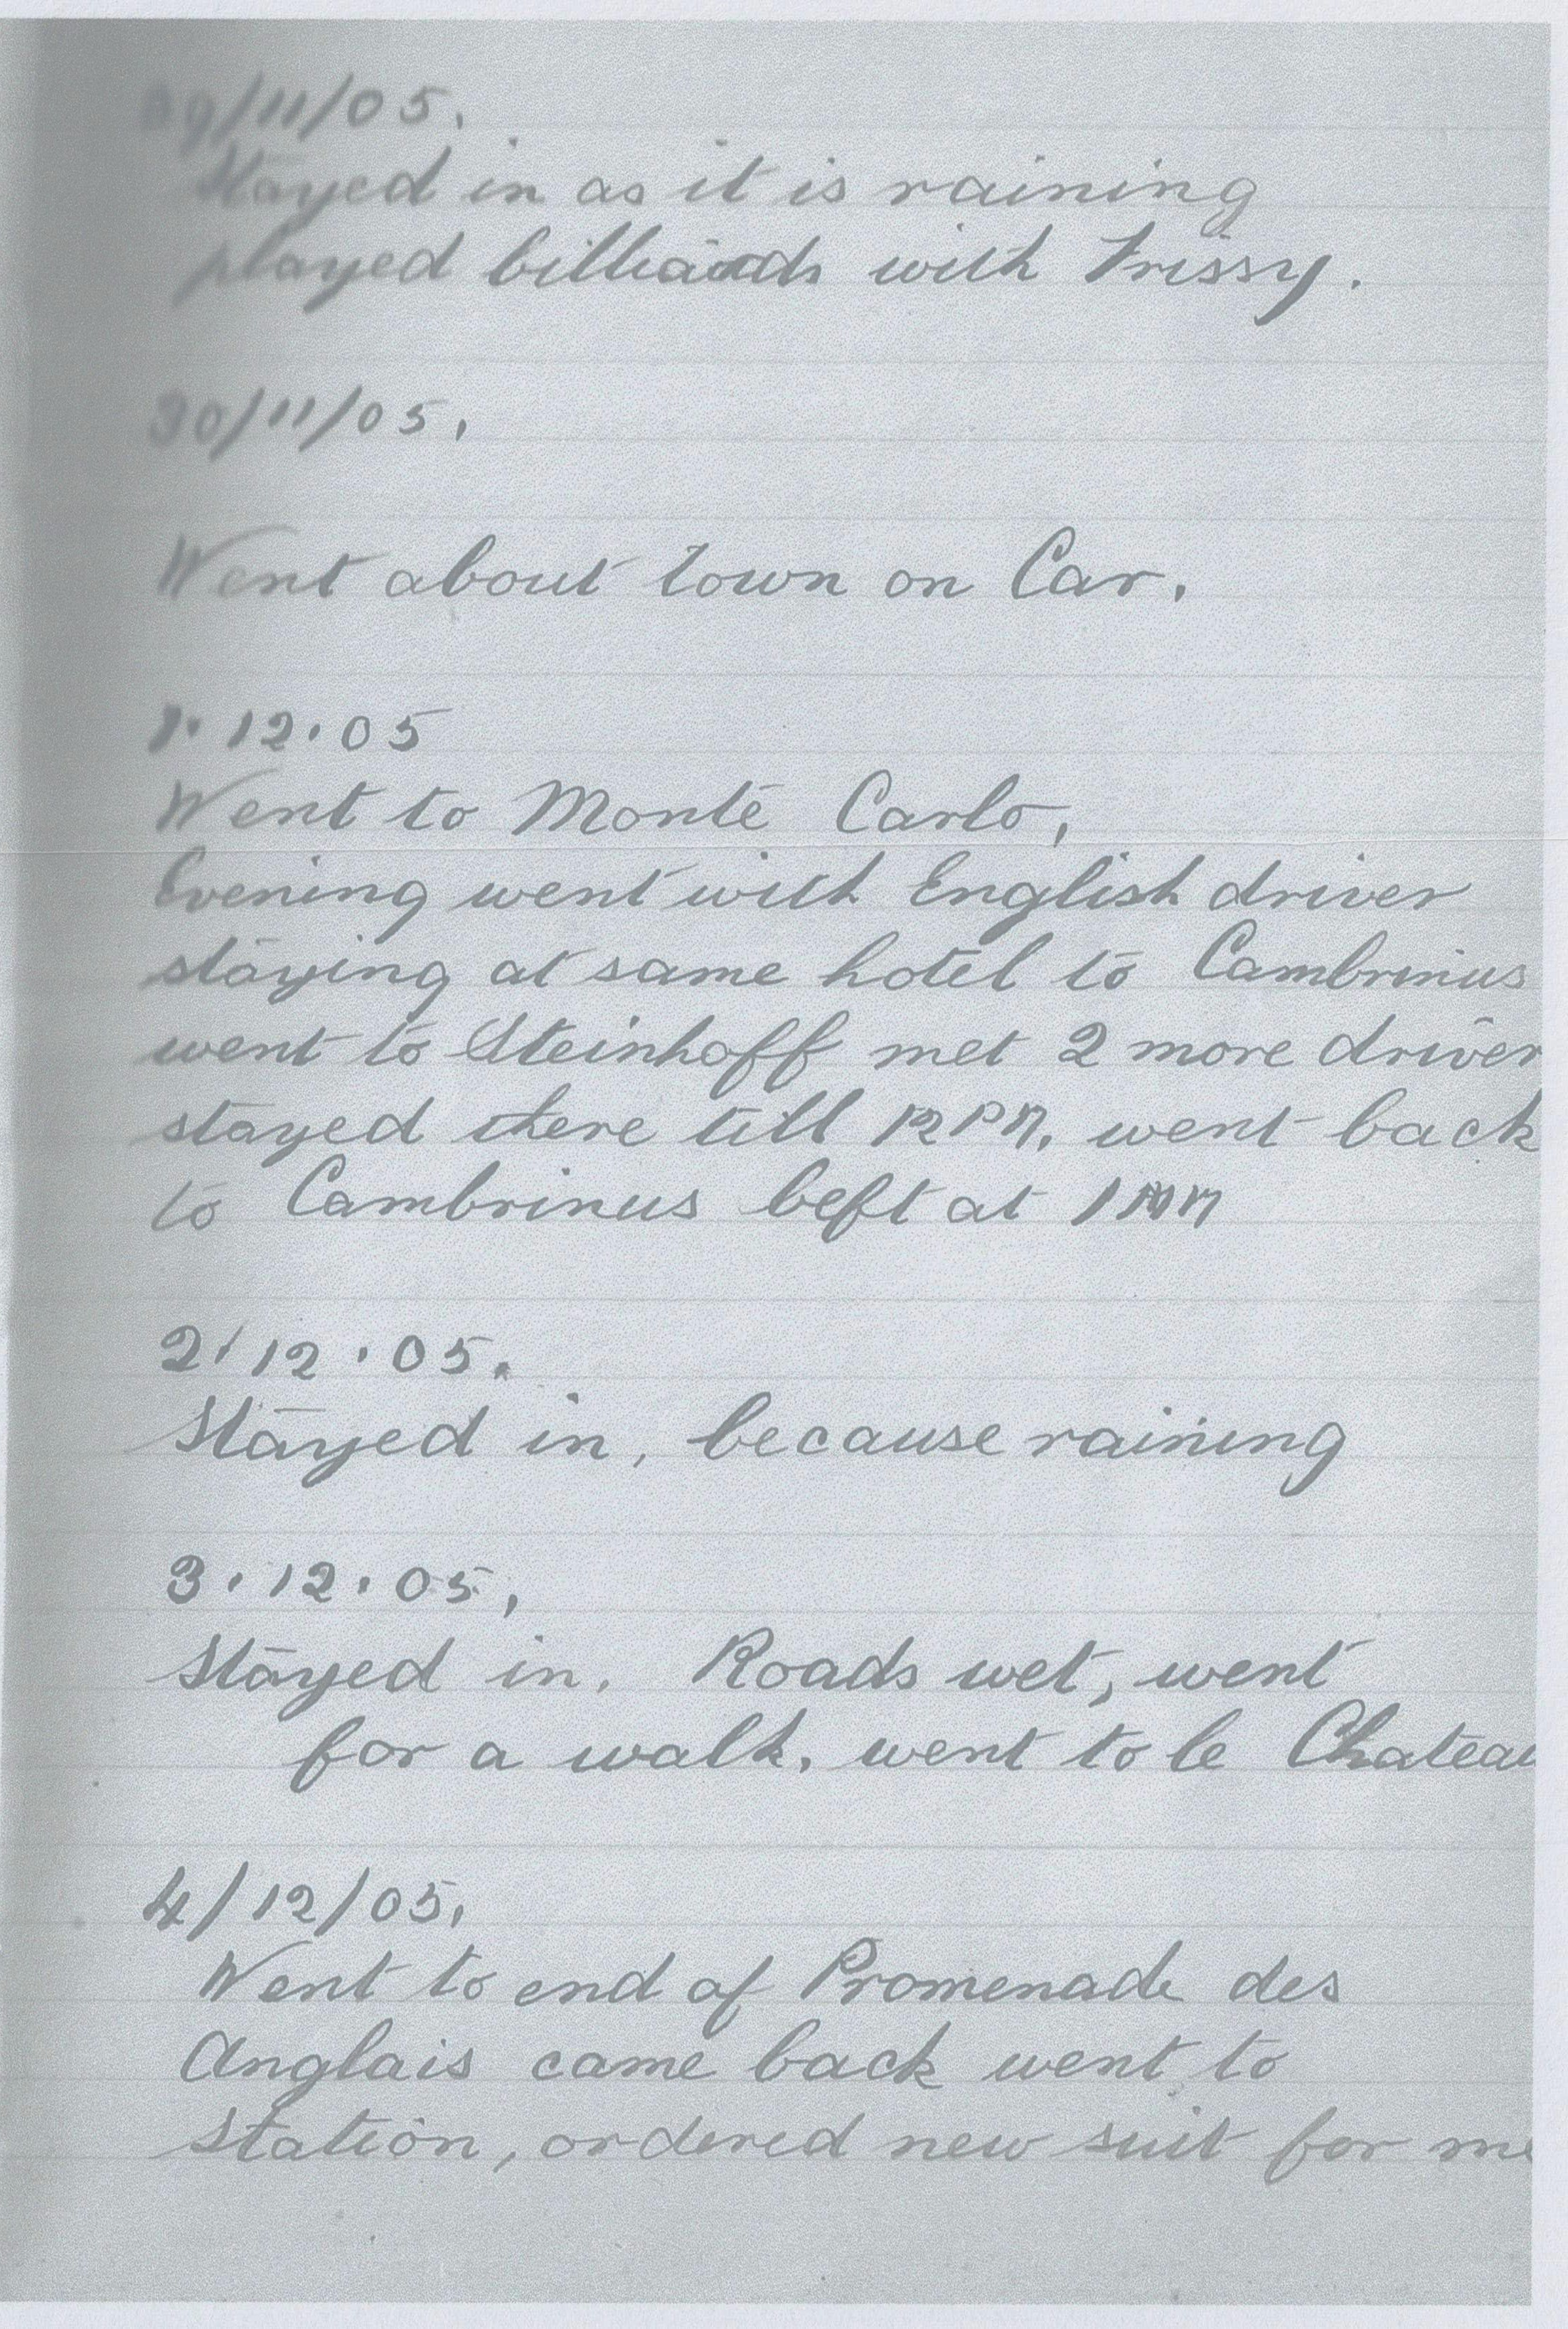 29/11/05.
Stayed in as it is raining
played billiards with Frissy.
30/11/05.
Went about town on Car.
1.12.05
Went to Monte Carlo,
Evening went with English driver
staying at same hotel to Cambrinus
went to Steinhoff met 2 more driver
stayed there till 12 PM. went back
to Cambrinus left at 1
2.12.05.
Stayed in, because raining
3.12.05,
Stayed in. Roads wet, went
for a walk, went to le Chateau
4/12/05,
Went to end of Promenade des
Anglais came back went to
Station, ordered new suit for me